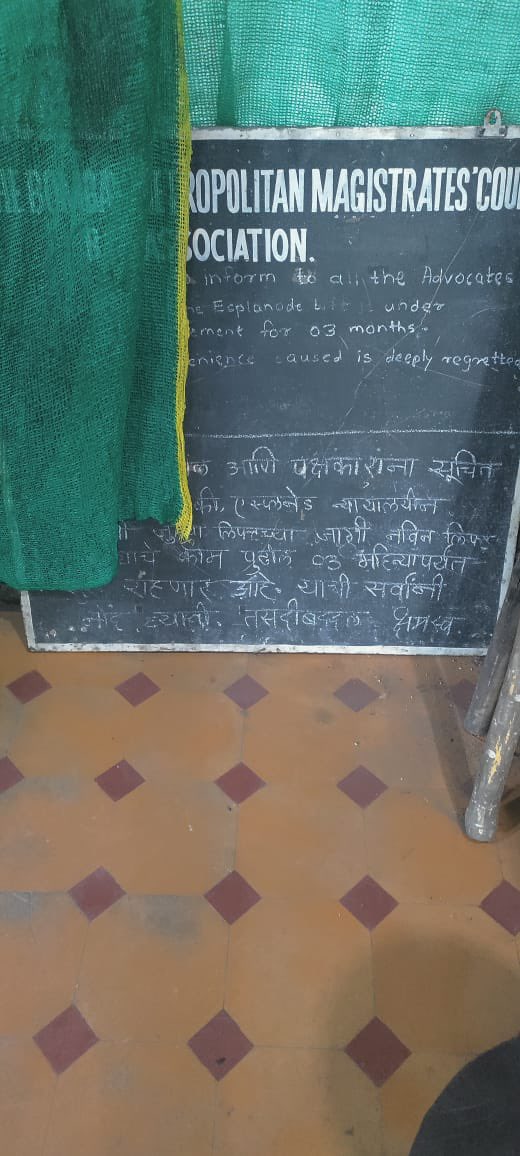 ROPOLITAN MAGISTRATES' COU
SOCIATION.
inform to all the Advocates
Esplanade Lift is under
ement for 03 months.
enience caused is deeply regretted
आणि पक्षकारांना सूचित
की, एस्प्लनेड न्यायालयीन
लिफ्टच्या जागी नविन लिफ्ट
चे काम पुढील 03 महिन्यापर्यंत
राहणार आहे. याची सर्वांनी
नोंद घ्यावी. तसदीबद्दल क्षमस्व.